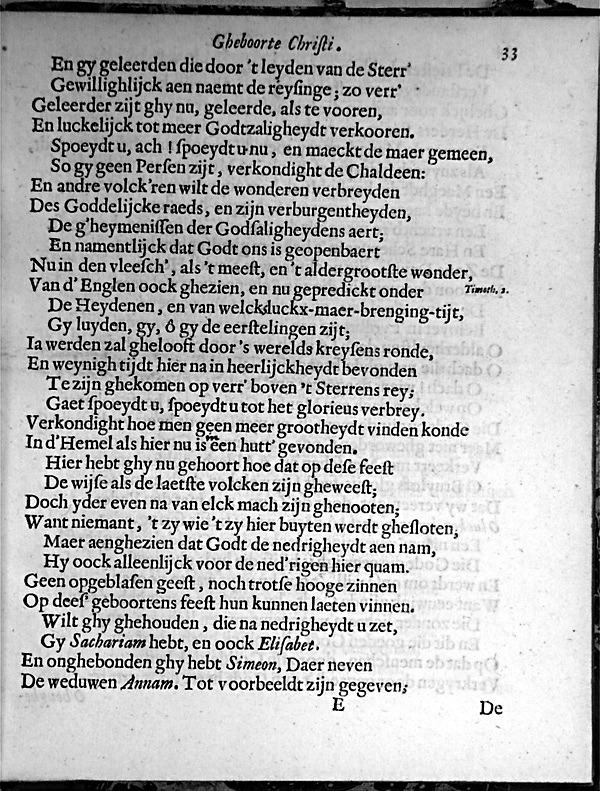 Gheboorte Chriſti.
33
En gy geleerden die door 't leyden van de Sterr'
Gewillighlijck aen naemt de reyſinge; zo verr'
Geleerder zijt ghy nu, geleerde, als te vooren,
En luckelijck tot meer Godtzaligheydt verkooren.
Spoeydt u, ach! ſpoeydt u nu, en maeckt de maer gemeen,
So gy geen Perſen zijt, verkondight de Chaldeen:
En andre volck'ren wilt de wonderen verbreyden
Des Goddelijcke raeds, en zijn verburgentheyden,
De g'heymeniſſen der Godſaligheydens aert;
En namentlijck dat Godt ons is geopenbaert
Nu in den vleeſch', als 't meeſt, en 't aldergrootſte wonder,
Van d'Englen oock ghezien, en nu gepredickt onder
Timoth. 2.
De Heydenen, en van welckduckx-maer-brenging-tijt,
Gy luyden, gy, ô gy de eerſtelingen zijt;
Ia werden zal ghelooft door 's werelds kreyſens ronde,
En weynigh tijdt hier na in heerlijckheydt bevonden
Te zijn ghekomen op verr' boven 't Sterrens rey;
Gaet ſpoeydt u, ſpoeydt u tot het glorieus verbrey.
Verkondight hoe men geen meer grootheydt vinden konde
In d'Hemel als hier nu is een hutt' gevonden.
Hier hebt ghy nu gehoort hoe dat op deſe feeſt
De wijſe als de laetſte volcken zijn gheweeſt;
Doch yder even na van elck mach zijn ghenooten;
Want niemant, 't zy wie 't zy hier buyten werdt gheſloten;
Maer aenghezien dat Godt de nedrigheydt aen nam,
Hy oock alleenlijck voor de ned'rigen hier quam.
Geen opgeblaſen geeſt, noch trotſe hooge zinnen
Op deeſ' geboortens feeſt hun kunnen laeten vinnen.
Wilt ghy ghehouden, die na nedrigheydt u zet,
Gy Sachariam hebt, en oock Eliſabet.
En onghebonden ghy hebt Simeon, Daer neven
De weduwen Annam. Tot voorbeeldt zijn gegeven;
E
De